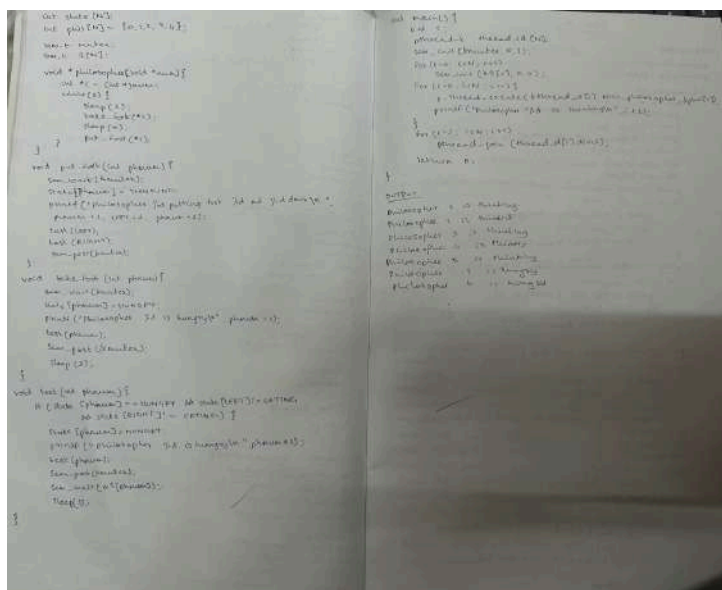 int state [N];
int phil[N] = {0,1,2,3,4};
sem_t mutex;
sem_t S[N];
void *philosopher(void *num){
int *i = num;
while(1) {
sleep(1);
take_fork(*i);
sleep(0);
put_fork(*i);
}
}
void put_fork (int phnum) {
sem_wait(&mutex);
state[phnum] = THINKING;
printf("philosopher %d putting fork %d and %d down\n",
phnum +1, LEFT +1, phnum +1);
test (LEFT);
test (RIGHT);
sem_post(&mutex);
}
void take_fork (int phnum){
sem_wait(&mutex);
state[phnum] = HUNGRY;
printf ("Philosopher %d is hungry\n", phnum +1);
test(phnum);
sem_post (&mutex);
sleep (1);
}
void test (int phnum) {
if (state [phnum] == HUNGRY && state[LEFT] != EATING
&& state [RIGHT] != EATING) {
state [phnum] = HUNGRY
printf ("Philosopher %d is hungry\n", phnum+1);
test (phnum);
sem_post(&mutex);
sem_wait(&S[phnum]);
sleep(1);
}
int main() {
int i;
pthread_t thread_id [N];
sem_init (&mutex, 0, 1);
for (i=0; i<N; i++)
sem_init (&S[i], 0, 0);
for (i=0; i<N; i++) {
pthread_create (&thread_id[i], philosopher, &phil[i]);
printf("Philosopher %d is thinking\n", i+1);
}
for (i=0; i<N; i++)
pthread_join (thread_id[i], NULL);
return 0;
}
OUTPUT
Philosopher 1 is thinking
Philosopher 2 is thinking
Philosopher 3 is thinking
Philosopher 4 is thinking
Philosopher 5 is thinking
Philosopher is hungry
Philosopher is hungry